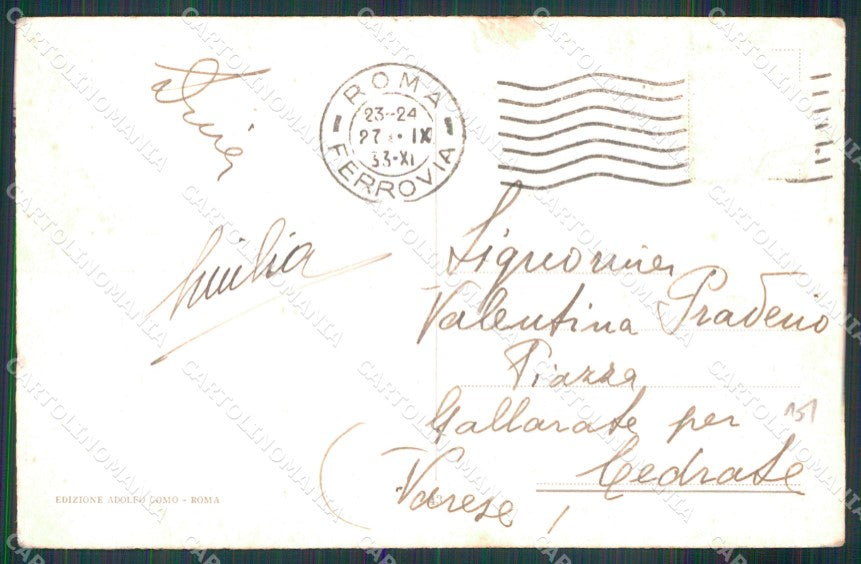 ROMA
23-24
27 · IX
33-XI
FERROVIA
Emilia
Signorina
Valentina Praderio
Piazza
Gallarate per
Cedrate
(Varese)
151
EDIZIONE ADOLFO COMO - ROMA
CARTOLINOMANIA